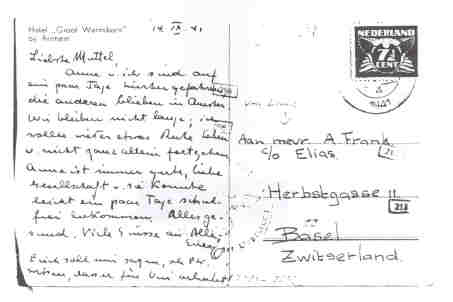 Hotel „Groot Warnsborn”
bij Arnhem
14 IX 41
Liebste Muttel,
Anne u. ich sind auf
ein paar Tage hierher gefahren
die anderen blieben in Amster
Wir bleiben nicht lange, ich
wollte wieder etwas Ruhe haben
u. nicht ganz allein fortgehen
Anne ist immer gute, liebe
Gesellschaft u. sie konnte
leicht ein paar Tage schul-
frei bekommen. Alles ge-
sund. Viele Grüsse an Alle
Erich soll mir sagen, ob
wissen, dass er für
NEDERLAND
7½
CENT
1941
Aan mevr. A. Frank.
c/o Elias.
Herbstgasse 11
Basel
Zwitserland.